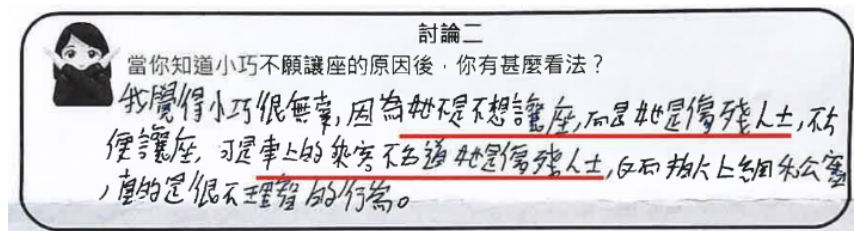 討論二
當你知道小巧不願讓座的原因後，你有甚麼看法？
我覺得小巧很無辜,因為她不是不想讓座,而是她是傷殘人士,不方
便讓座,可是車上的乘客不知道她是傷殘人士,反而拍片上網和公審
,真的是很不理智的行為。